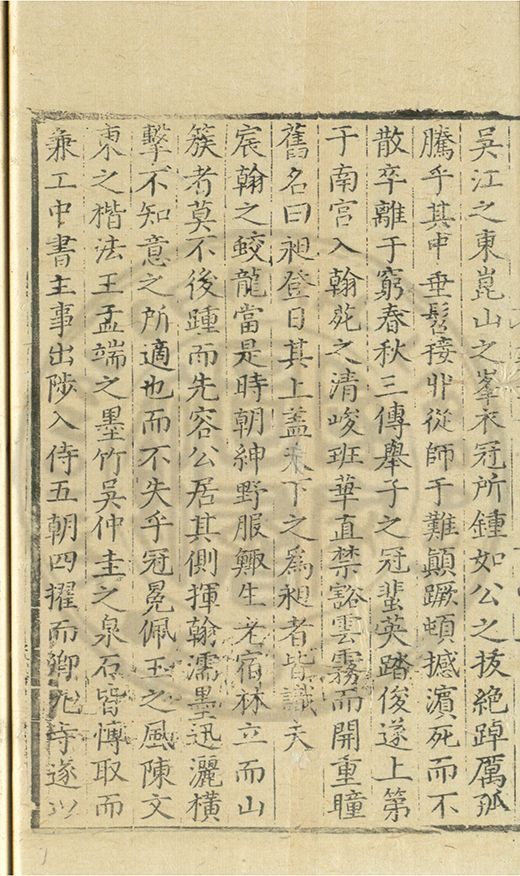 吳江之東崑山之峯衣冠所鍾如公之拔絶踔厲孤
騰乎其中垂髫接丱從師于難顛蹶頓撼濵死而不
散卒離于窮春秋三傳舉子之冠蜚英踏俊遂上第
于南宫入翰苑之清峻班華直禁豁雲霧而開重瞳
舊名曰昶登日其上盖下之爲昶者皆識夫
宸翰之蛟龍當是時朝紳野服鯫生老宿林立而山
簇者莫不後踵而先容公居其側揮翰濡墨迅灑横
擊不知意之所適也而不失乎冠冕佩玉之風陳文
東之楷法王孟端之墨竹吳仲圭之泉石皆慱取而
兼工中書主事出陟入侍五朝四擢而卿寺遂以